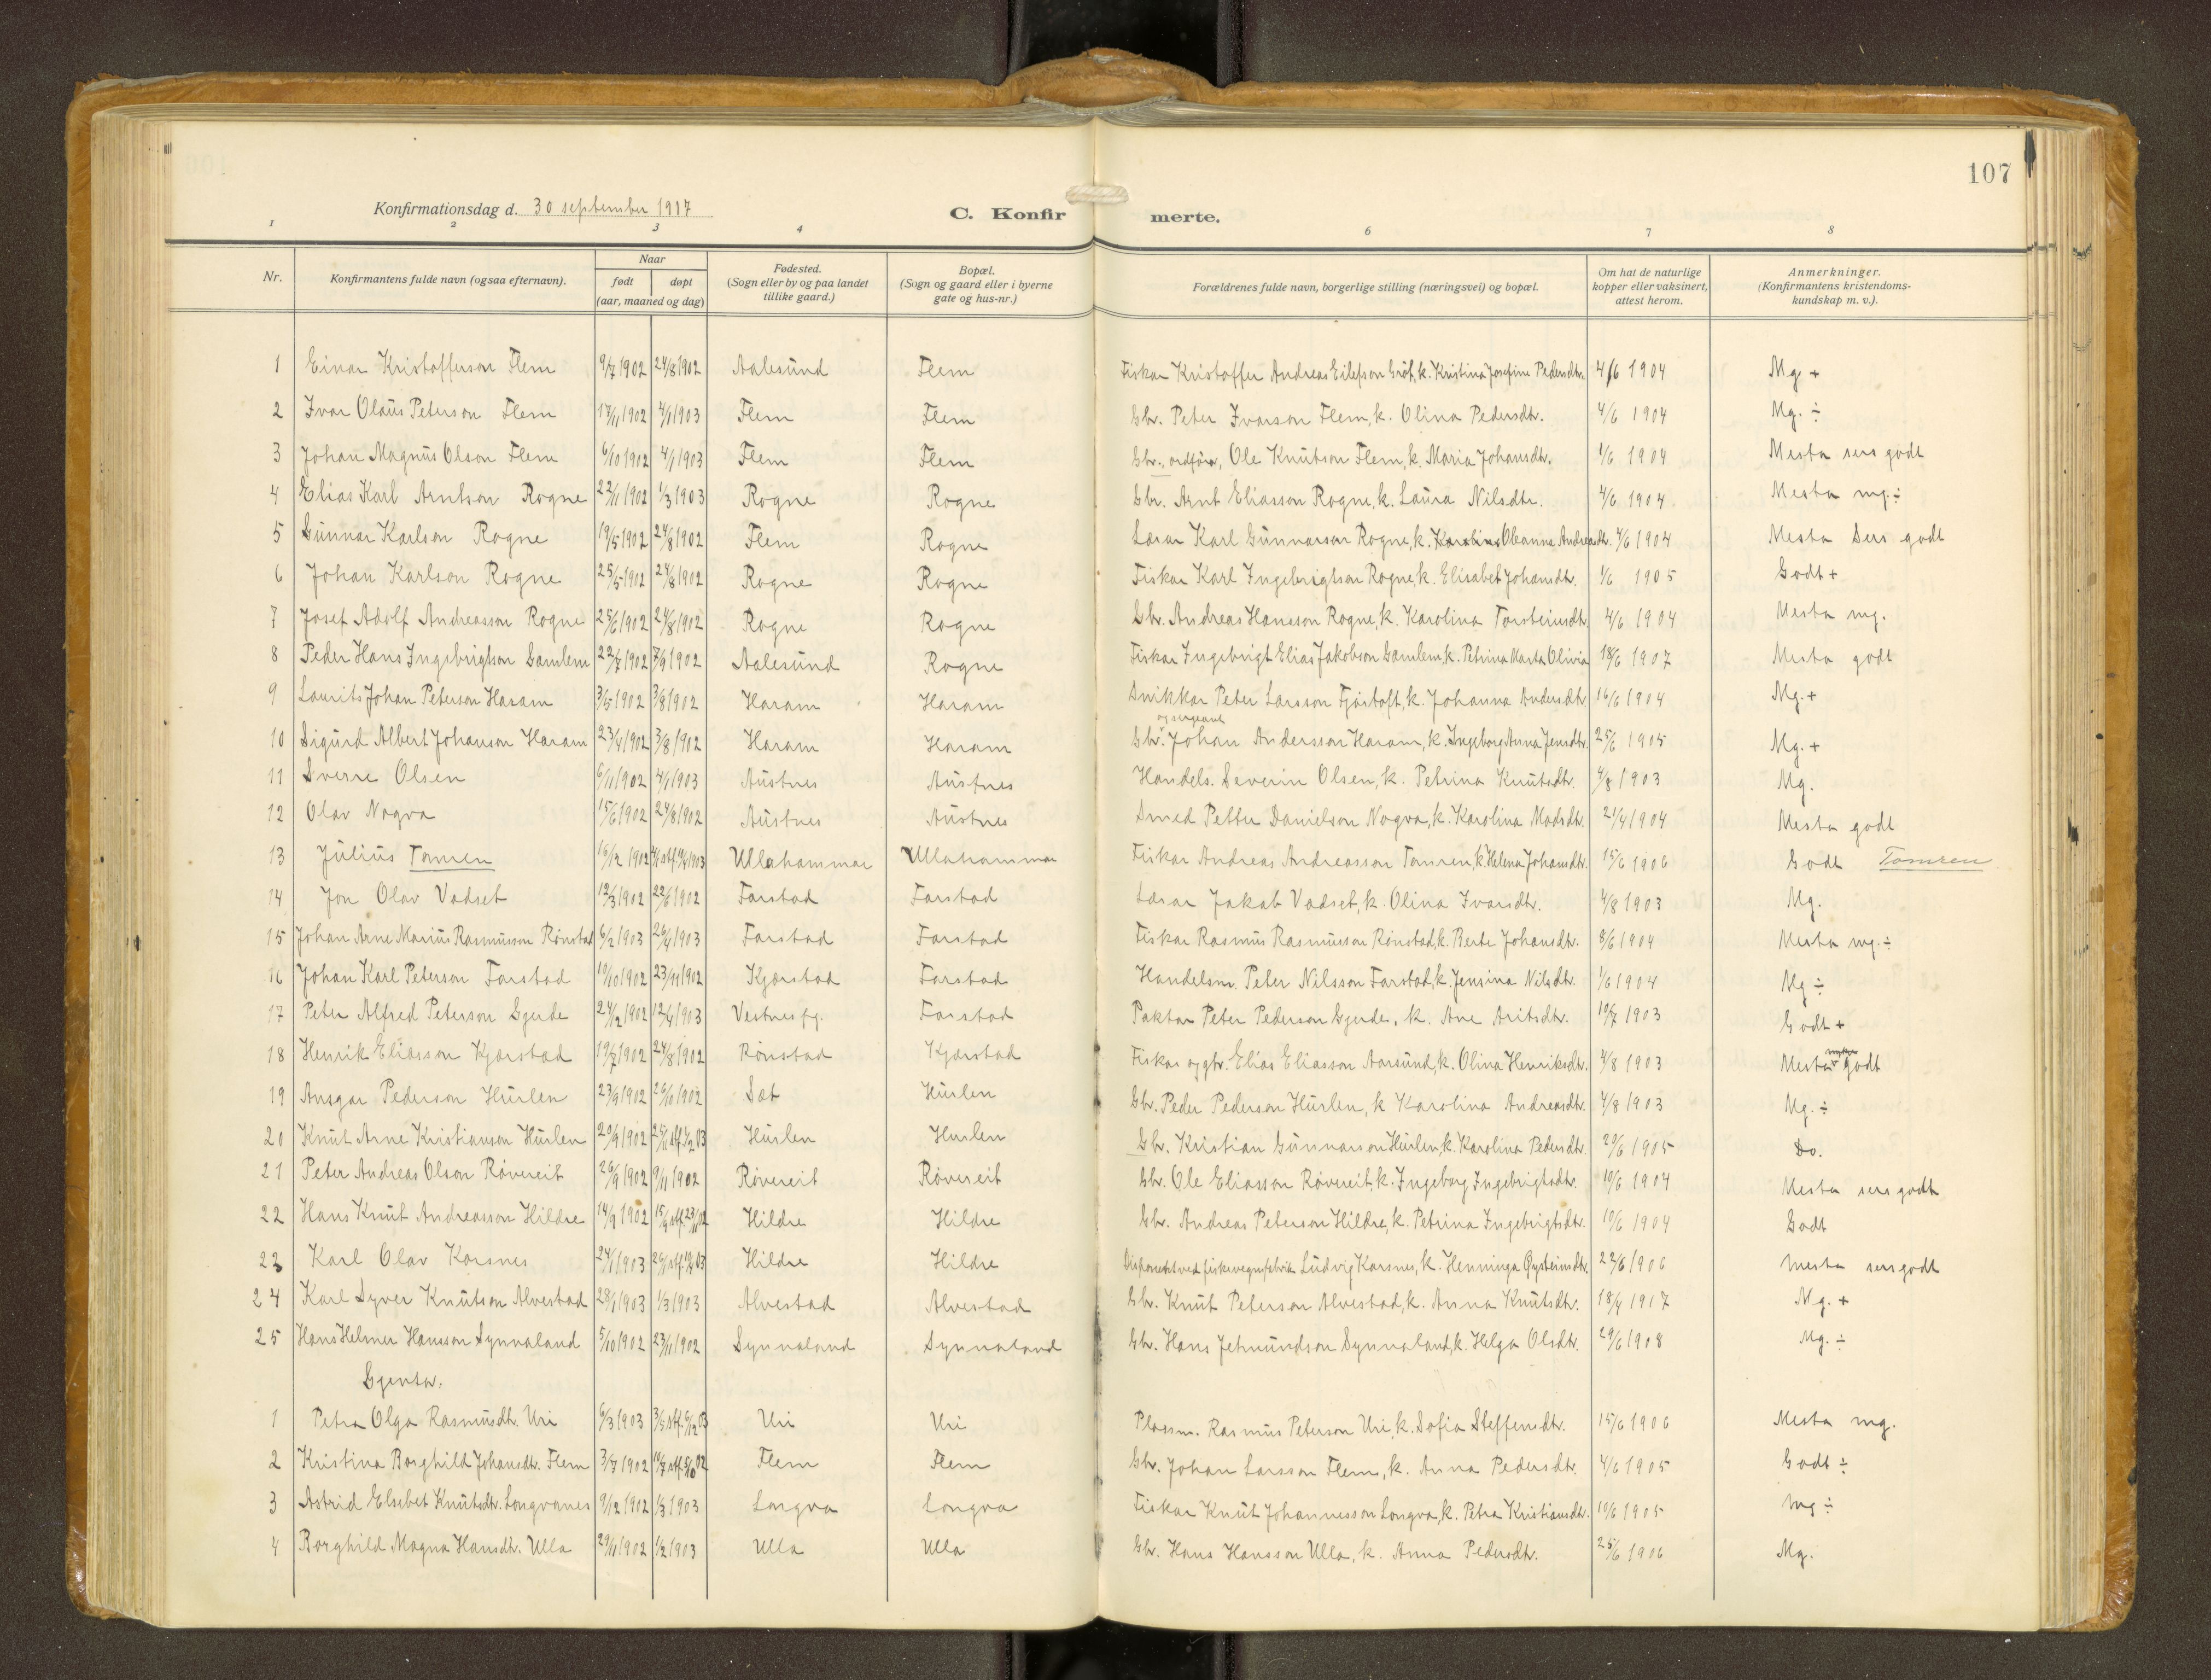 107
Konfirmationsdag d. 30 september 1917
C. Konfir merte.
1 2 3 4 6 7 8
Nr.
Konfirmantens fulde navn (ogsaa efternavn).
Naar
født døpt
(aar, maaned og dag)
Fødested.
(Sogn eller by og paa landet
tillike gaard.)
Bopæl.
(Sogn og gaard eller i byerne
gate og hus-nr.)
Forældrenes fulde navn, borgerlige stilling (næringsvei) og bopæl.
Om hat de naturlige
kopper eller vaksinert,
attest herom.
Anmerkninger.
(Konfirmantens kristendoms-
kundskap m. v.).
1 Einar Kristofferson Flem 9/7 1902 24/8 1902 Aalesund Flem Fiskar Kristoffer Andreas Eilefson Gröt, k. Kristina Josefine Pedersdtr. 4/6 1904 Mg +
2 Ivar Olaus Peterson Flem 17/11 1902 4/1 1903 Flem Flem Gbr. Peter Ivarson Flem, k. Olina Pedersdtr. 4/6 1904 Mg. ÷
3 Johan Magnus Olson Flem 6/10 1902 4/1 1903 Flem Flem Gbr., ordförar, Ole Knutson Flem, k. Maria Johansdtr. 1/6 1904 Mesta sers godt
4 Elias Karl Arntson Rogne 22/11 1902 1/3 1903 Rogne Rogne Gbr. Arnt Eliasson Rogne, k. Laura Nilsdtr. 4/6 1904 Mesta mg. ÷
5 Gunnar Karlson Rogne 19/5 1902 24/8 1902 Flem Rogne Lærar Karl Gunnarson Rogne, k. Karoline Oleanna Andreasdtr. 4/6 1904 Mesta Sers godt
6 Johan Karlson Rogne 25/5 1902 24/8 1902 Rogne Rogne Fiskar Karl Ingebrigtson Rogne, k. Elisabet Johansdtr. 1/6 1905 Godt +
7 Josef Adolf Andreasson Rogne 25/6 1902 24/8 1902 Rogne Rogne Gbr. Andreas Hansson Rogne, k. Karolina Torsteinsdtr. 4/6 1904 Mesta mg.
8 Peder Hans Ingebrigtson Gamlem 22/7 1902 7/9 1902 Aalesund Rogne Fiskar Ingebrigt Elias Jakobson Gamlem, k. Petrina Marta Olivia 18/6 1907 Mesta godt
9 Laurits Johan Peterson Haram 3/5 1902 3/8 1902 Haram Haram Snikkar Peter Larsson Fjørtoft, k. Johanna Andersdtr. 16/6 1904 Mg. +
10 Sigurd Albert Johanson Haram 23/4 1902 3/8 1902 Haram Haram Gbr. og sergeant Johan Andersson Haram, k. Ingeborg Anna Jensdtr. 25/6 1905 Mg. +
11 Sverre Olsen 6/11 1902 4/1 1903 Austnes Austnes Handels. Severin Olsen, k. Petrina Knutsdtr. 4/8 1903 Mg.
12 Olav Nogva 15/6 1902 24/8 1902 Austnes Austnes Smed Petter Danielson Nogva, k. Karolina Madsdtr. 21/4 1904 Mesta godt
13 Julius Tomren 16/12 1902 Ullahammar Ullahammar Fiskar Andreas Andreasson Tomren, k. Helena Johansdtr. 15/6 1906 Godt Tomren
14 Jon Olav Vadset 12/3 1902 22/6 1902 Farstad Farstad Lærar Jakob Vadset, k. Olina Ivarsdtr. 4/8 1903 Mg.
15 Johan Arne Marius Rasmusson Rönstad 6/2 1903 26/4 1903 Farstad Farstad Fiskar Rasmus Rasmusson Rönstad, k. Berte Johansdtr. 8/6 1904 Mesta mg. ÷
16 Johan Karl Peterson Farstad 10/10 1902 23/11 1902 Kjærstad Farstad Handelsm. Peter Nilsson Farstad, k. Jensina Nilsdtr. 1/6 1904 Mg ÷
17 Peter Alfred Peterson Gjerde 24/12 1902 12/4 1903 Vestnes pg. Farstad Paktar Peter Pederson Gjerde, k. Ane Aritsdtr. 10/7 1903 Godt +
18 Henrik Eliasson Kjærstad 19/7 1902 24/8 1902 Rönstad Kjærstad Fiskar og gbr. Elias Eliasson Aarsund, k. Olina Henriksdtr. 4/8 1903 Mesta godt
19 Ansgar Pederson Hurlen 23/9 1902 26/10 1902 Sæt Hurlen Gbr. Peder Pederson Hurlen, k Karolina Andreasdtr. 4/8 1903 Mg. ÷
20 Knut Arne Kristianson Hurlen 20/9 1902 Hurlen Hurlen Gbr. Kristian Gunnarson Hurlen, k. Karolina Pedersdtr. 20/6 1905 Do.
21 Peter Andreas Olson Rövereit 26/9 1902 9/11 1902 Rövereit Rövereit Gbr. Ole Eliasson Rövereit, k. Ingeborg Ingebrigtsdtr. 10/6 1904 Mesta sers godt
22 Hans Knut Andreasson Hildre 14/9 1902 Hildre Hildre Gbr. Andreas Peterson Hildre, k. Petrina Ingebrigtsdtr. 10/6 1904 Godt
23 Karl Olav Karsnes 24/1 1903 Hildre Hildre Ludvig Karsnes, k. Henninga Øysteinsdtr. 22/6 1906 Mesta sers godt
24 Karl Syver Knutson Alvestad 28/1 1903 1/3 1903 Alvestad Alvestad Gbr. Knut Peterson Alvestad, k. Anna Knutsdtr. 18/4 1917 Mg. +
25 Hans Helmer Hansson Synnaland 5/10 1902 23/11 1902 Synnaland Synnaland Gbr. Hans Jetmundson Synnaland, k. Helga Olsdtr. 29/6 1908 Mg. ÷
Gjentor.
1 Petra Olga Rasmusdtr. Uri 6/3 1903 Uri Uri Plassm. Rasmus Peterson Uri, k. Sofia Steffensdtr. 15/6 1906 Mesta mg.
2 Kristina Borghild Johansdtr. Flem 3/7 1902 Flem Flem Gbr. Johan Larsson Flem, k. Anna Pedersdtr. 4/6 1905 Godt ÷
3 Astrid Elsebet Knutsdtr. Longvanes 9/12 1902 1/3 1903 Longva Longva Fiskar Knut Johannesson Longva, k. Petra Kristiansdtr. 10/6 1905 mg ÷
4 Borghild Magna Hansdtr. Ulla 29/11 1902 1/2 1903 Ulla Ulla Gbr. Hans Hansson Ulla, k. Anna Pedersdtr. 25/6 1906 Mg.